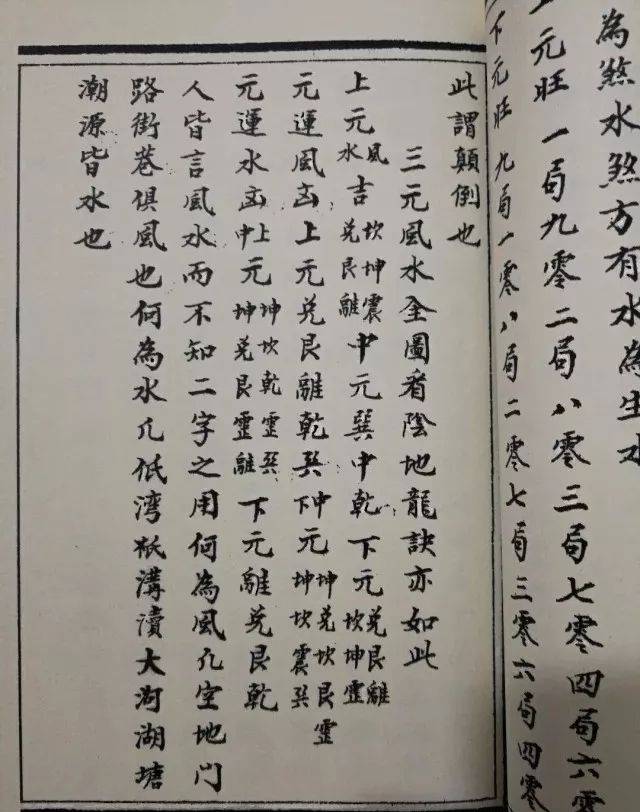 為煞水煞方有水為生水
上元旺一局九零二局八零三局七零四局六零
下元旺九局一零八局二零七局三零六局四零
此謂顛倒也
三元風水全圖看陰地龍訣亦如此
上元風水吉坎坤震兌艮離中元巽中乾下元兌艮離坎坤震
元運風凶上元兌艮離乾巽中下元坤兌坎艮震坤坎震巽
元運水凶上中元坤坎乾震巽坤兌艮震離下元離兌艮乾
人皆言風水而不知二字之用何為風凡空地門
路街巷俱風也何為水凡低湾低溝瀆大河湖塘
潮源皆水也